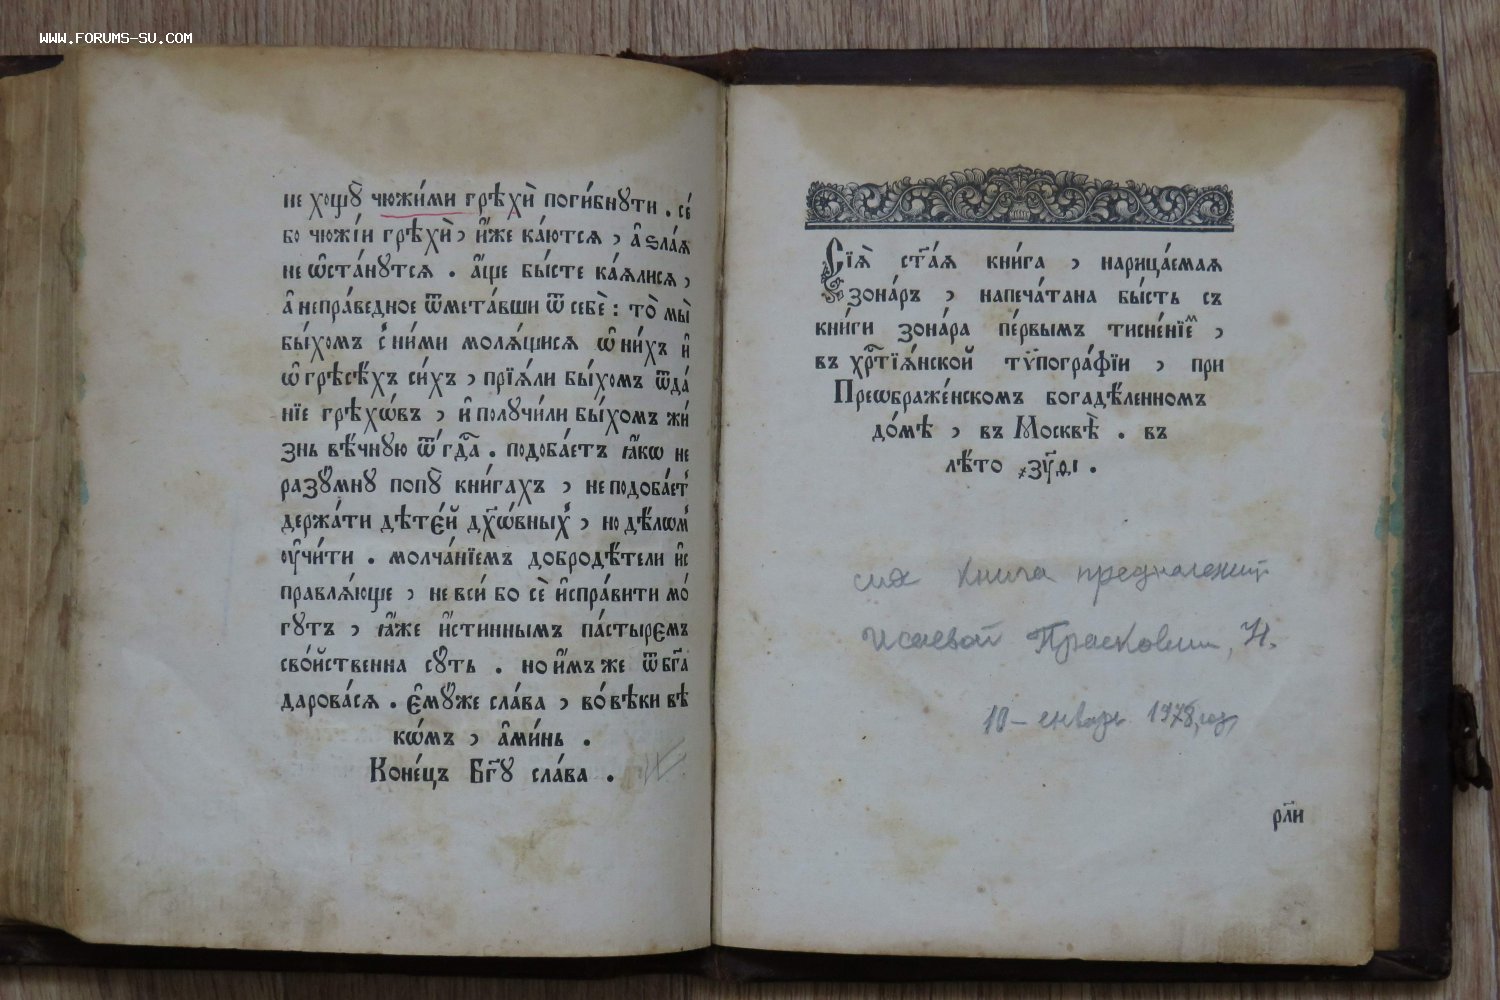 WWW.FORUMS-SU.COM
не хощꙋ̀ чюжи́ми грѣхѝ поги́бнꙋти . се́
бо чюжі́и грѣхѝ , и҆̀же ка́ются , а҆̀ ѕла́ѧ
не ѡ҆ста́нꙋтсѧ . а҆́ще бы́сте ка́ѧлисѧ ,
а҆̀ непра́ведное ѿмета́вши ѿ себѐ : то̀ мы̀
бы́хомъ с ни́ми молѧ́щисѧ ѡ҆ ни́хъ и҆̀
ѡ҆ грѣсѣ́хъ си́хъ , прїѧ́ли бы́хомъ ѿда́
нїе грѣхѡ́въ , и҆̀ полꙋчи́ли бы́хомъ жи́
знь вѣ́чнꙋю ѿ гдⷭ҇а . подоба́етъ ꙗ҆́кѡ не
разꙋ́мнꙋ попꙋ̀ кни́гахъ , не подоба́етъ
держа́ти дѣте́й дх҃ѡ́вныхъ , но дѣ́лѡмъ
ᲂу҆чи́ти . молча́нїемъ добродѣ́тели и҆с
правлѧ́юще , не всѝ бо сѐ и҆спра́вити мо́
гꙋтъ , ꙗ҆́же и҆́стиннымъ па́стыремъ
сво́йственна сꙋ́ть . но и҆́мъ же ѿ бг҃а
дарова́сѧ . є҆мꙋ́же сла́ва , во́ вѣки вѣ
кѡ́мъ , а҆ми́нь .
Коне́цъ Бг҃ꙋ сла́ва .
Сїѧ̀ ст҃а́ѧ кни́га , нарица́емаѧ
зона́ръ , напеча́тана бы́сть съ
кни́ги зона́ра пе́рвымъ тисне́нїеⷨ ,
въ хрⷭ҇тїѧ́нской тѷпогра́фїи , при
Преѡбраже́нскомъ богадѣ́ленномъ
до́мѣ , въ Москвѣ̀ . въ
лѣ́то ҂зу҃ѳі .
сия Книга предналежит
Исаевой Прасковии, Н.
10 – январь 1978, год
рл҃и